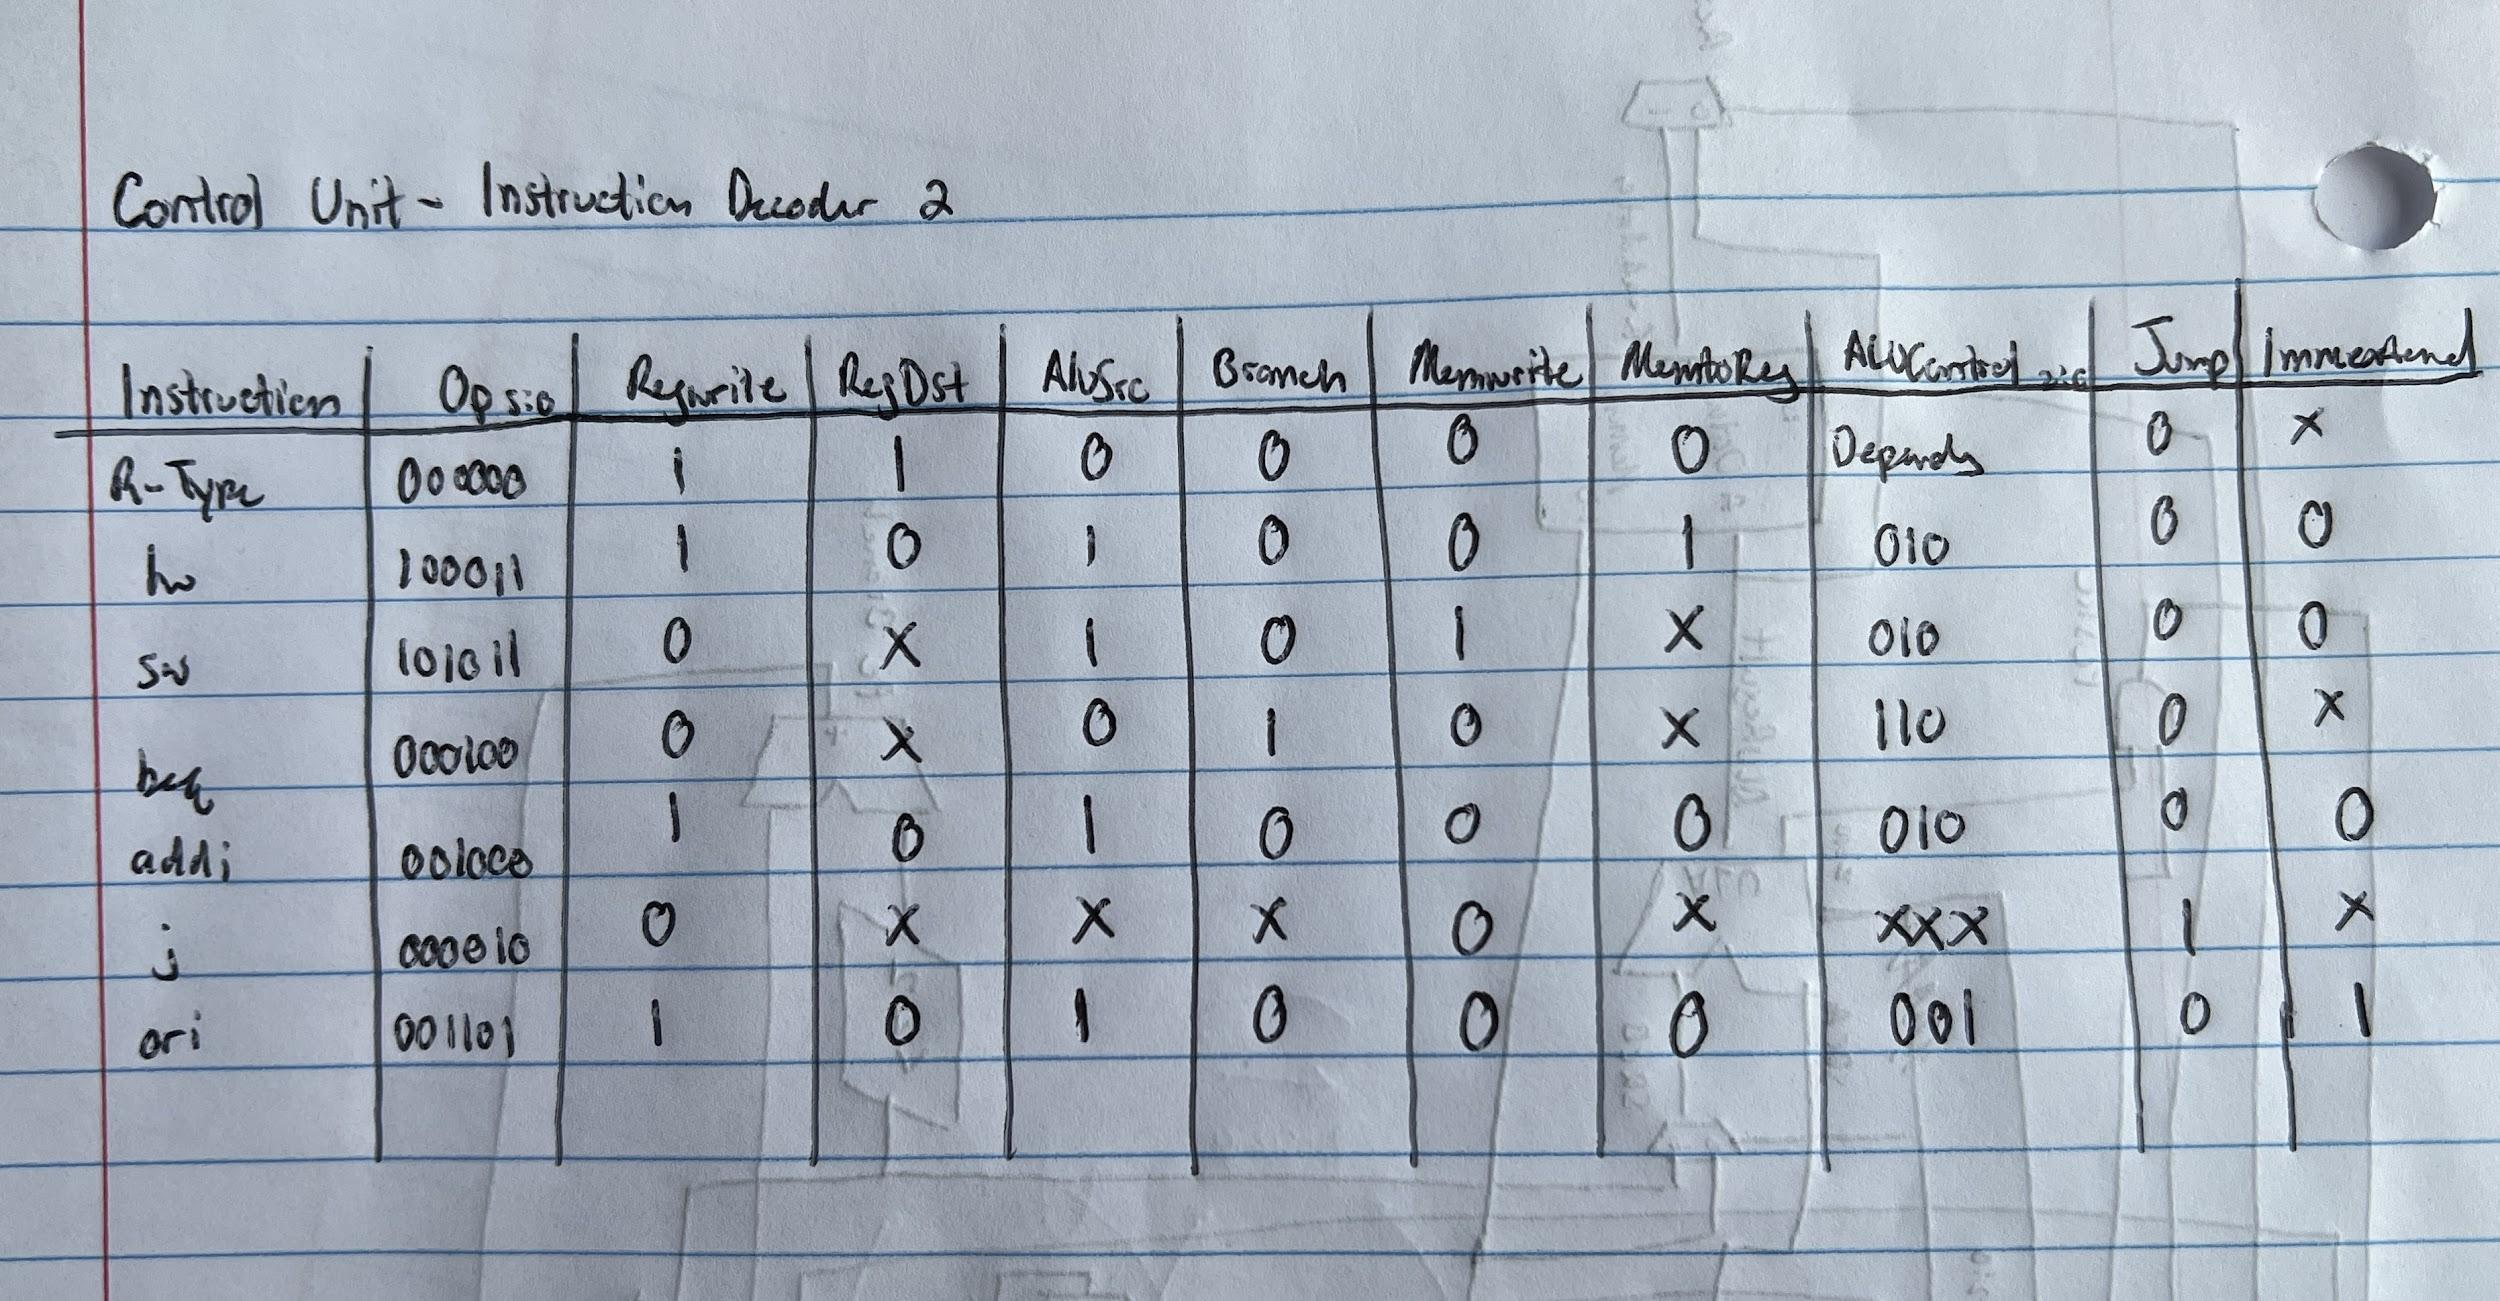 Control Unit - Instruction Decoder 2
Instruction Op 5:0 Regwrite RegDst AluSrc Branch Memwrite MemtoReg ALUControl 2:0 Jump Immextend
R-Type 000000 1 1 0 0 0 0 Depends 0 X
lw 100011 1 0 1 0 0 1 010 0 0
sw 101011 0 X 1 0 1 X 010 0 0
beq 000100 0 X 0 1 0 X 110 0 X
addi 001000 1 0 1 0 0 0 010 0 0
j 000010 0 X X X 0 X XXX 1 X
ori 001101 1 0 1 0 0 0 001 0 1